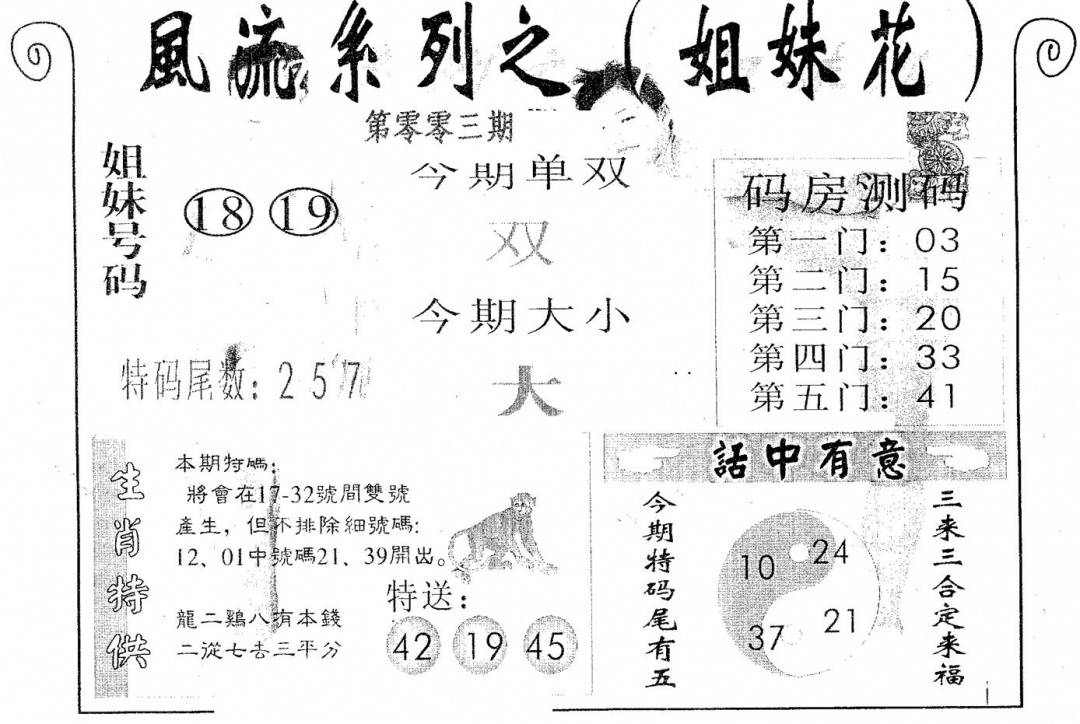 風流系列之（姐妹花）
第零零三期
姐妹号码
18 19
今期单双
双
今期大小
大
特码尾数：257
码房测码
第一门：03
第二门：15
第三门：20
第四门：33
第五门：41
生肖特供
本期特碼：
將會在17-32號間雙號
產生，但不排除細號碼：
12、01中號碼21、39開出。
龍二鷄八有本錢
二從七去三平分
特送：
42 19 45
話中有意
今期特码尾有五
10 24
37 21
三来三合定来福